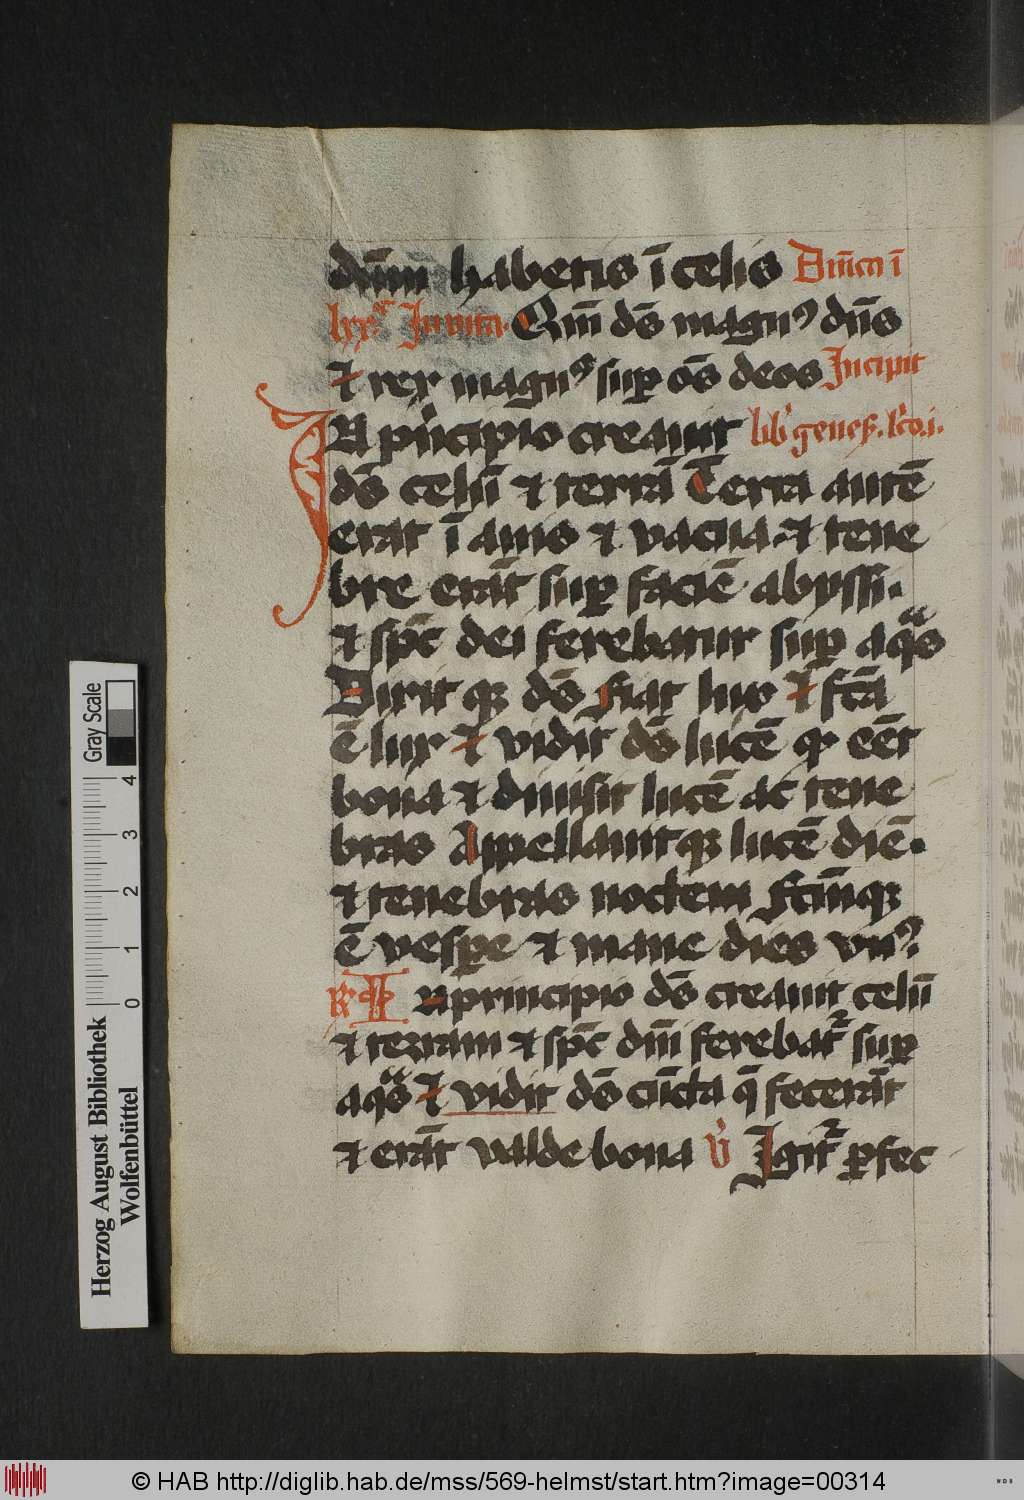 dnm̄ habetis ī celis Dm̄ca ī
lxxᵃ Inuita. Qm̄ ds̄ magnꝰ dn̄s
⁊ rex magnꝰ suꝑ os̄ deos Incipit
IN pͥncipio creauit lib̾ geneẜ. lc̄o. i.
ds̄ celū ⁊ terrā Terra autē
erat īanis ⁊ vacua. ⁊ tene
bre erāt suꝑ faciē abyssi.
⁊ spc̄ dei ferebatur suꝑ aqᷓs
Dixit qꝫ ds̄ fiat lux ⁊ fcā
ē lux ⁊ vidit ds̄ lucē ꝙ eēt
bona ⁊ diuisit lucē ac tene
bras Appellauitqꝫ lucē diē.
⁊ tenebras noctem fc̄mqꝫ
ē vesꝑe ⁊ mane dies vnꝰ.
℟ IN principio ds̄ creauit celū
⁊ terram ⁊ spc̄ dm̄ ferebat᷑ suꝑ
aqᷓs ⁊ vidit ds̄ cūcta q̄ fecerāt
⁊ erāt valde bona ℣ Igit᷑ ꝑfec
Gray Scale
4
3
2
1
0
Herzog August Bibliothek
Wolfenbüttel
© HAB http://diglib.hab.de/mss/569-helmst/start.htm?image=00314